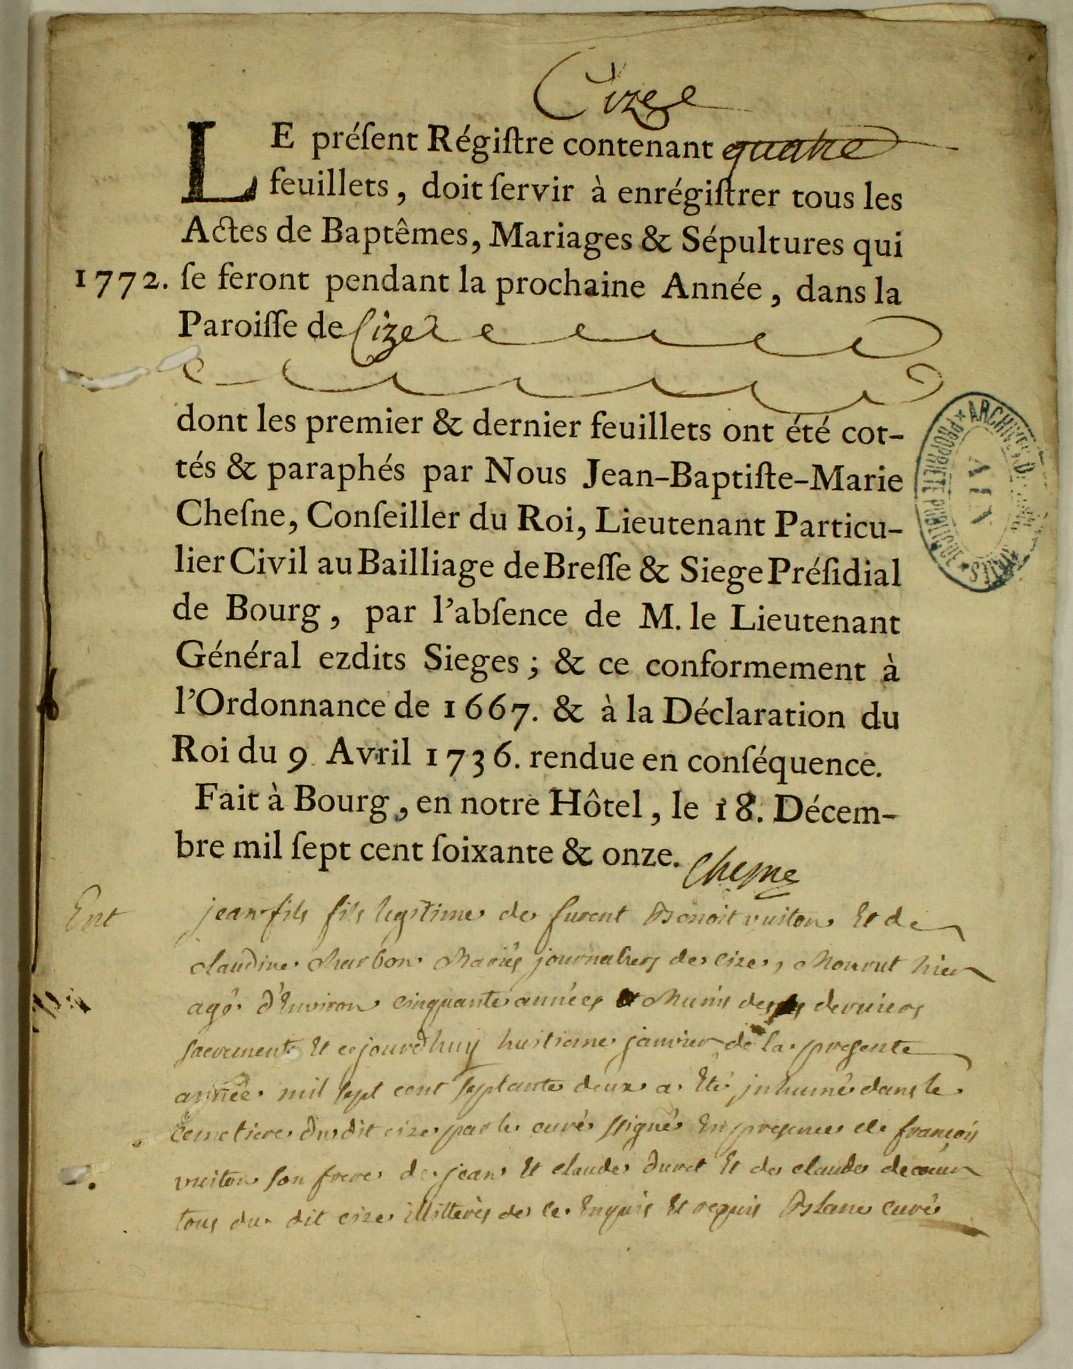 Cize
LE préſent Régiſtre contenant quatre
feuillets, doit ſervir à enrégiſtrer tous les
Actes de Baptêmes, Mariages & Sépultures qui
1772. ſe feront pendant la prochaine Année, dans la
Paroiſſe de Cize
dont les premier & dernier feuillets ont été cot-
tés & paraphés par Nous Jean-Baptiſte-Marie
Cheſne, Conſeiller du Roi, Lieutenant Particu-
lier Civil au Bailliage de Breſſe & Siege Préſidial
de Bourg, par l'abſence de M. le Lieutenant
Général ezdits Sieges; & ce conformement à
l'Ordonnance de 1667. & à la Déclaration du
Roi du 9 Avril 1736. rendue en conſéquence.
Fait à Bourg, en notre Hôtel, le 18. Décem-
bre mil ſept cent ſoixante & onze.
Chesne
Ent
jean fils fils legitime de furent Benoit vuiton Et de
claudine Marbon Mariés journaliers de cize, Mourut hier
agé d'Environ cinquante années et Munis des derniers
sacrement Et cejourdhuy huitieme janvier de la presente
année mil sept cent septante deux a Eté jnhumé dans le
Cemetiere du dit cize par le curé ssigné En presence de francois
vuiton son frere de jean Et claude duret Et de claude
tous du dit cize illitterés de ce Enquis Et requis Blanc curé
ARCHIVES DE L'AIN
PROPRIÉTÉ PUBLIQUE
AIN